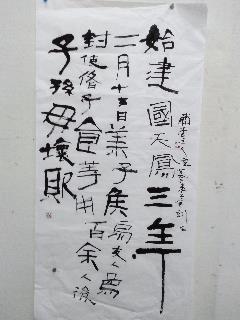 始建國天鳳三年
二月十三日萊子侯為支人為
封使偖子食等用百余人後
子孫毋壞敗